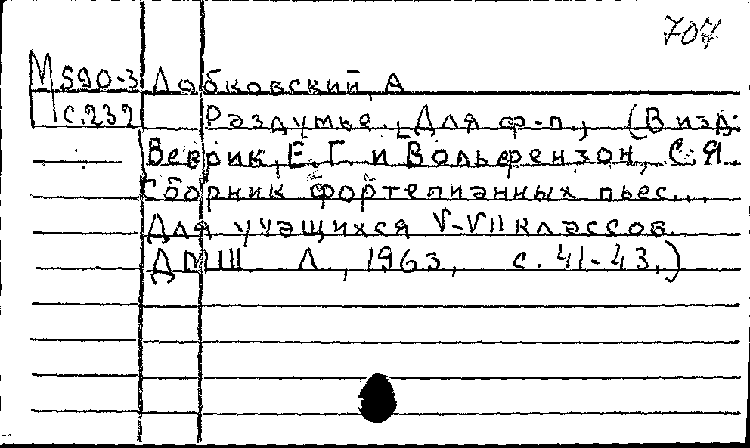 707
М590-3 Лабковский, А
П с.232 Раздумье. [Для ф-п., (В изд:
Веврик, Е.Г. и Вольфензон, С.Я
Сборник фортепианных пьес...
Для учащихся V-VII классов
ДМШ Л., 1963, с. 41-43.)